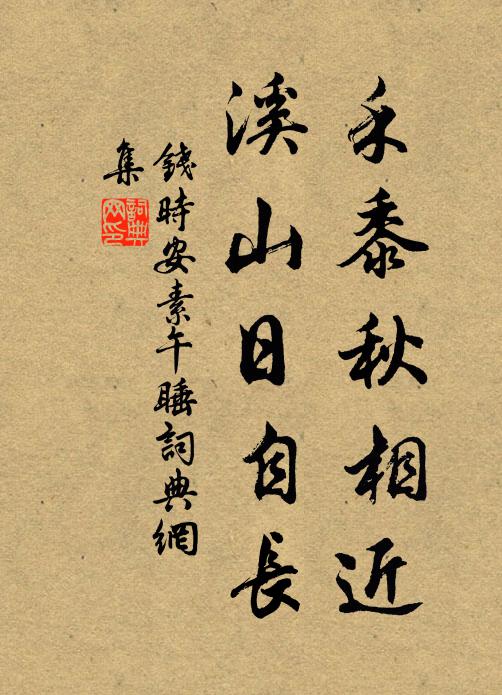 禾黍秋相近
溪山日自長
錢時安素午睡詞典網
集
詞典網印